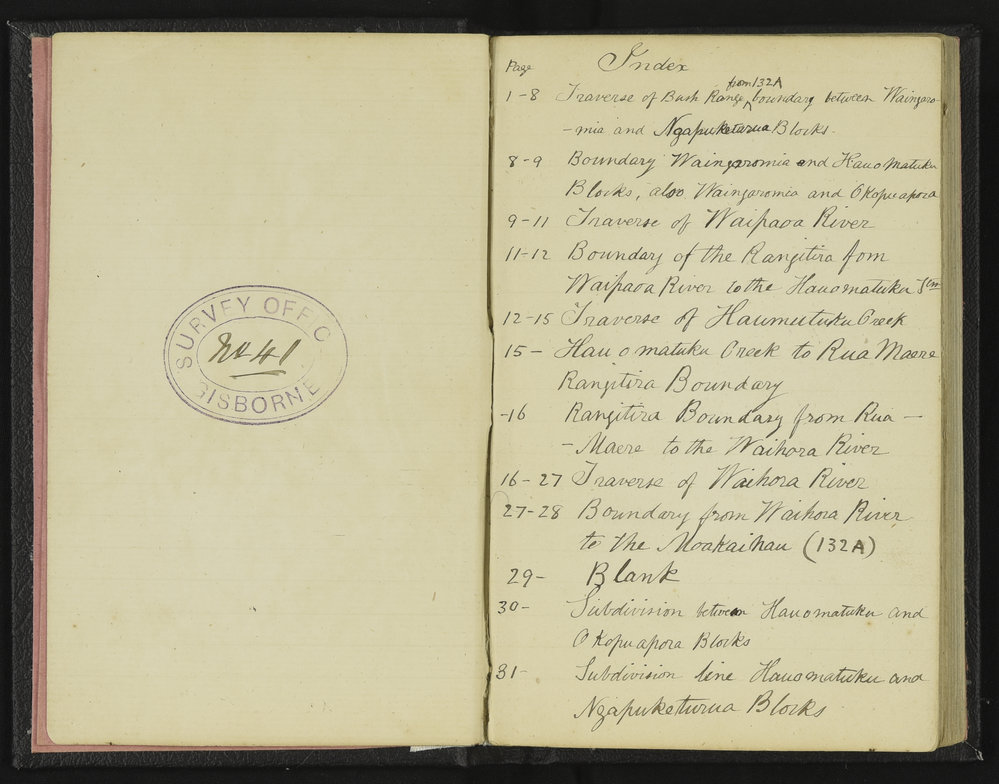 SURVEY OFFIC
No 41
GISBORNE
Page Index
from 132A
1-8 Traverse of Bush Range boundary between Waingaro-
-mia and Ngapuketurua Blocks.
8-9 Boundary Waingaromia and Hauomatuku
Blocks, also Waingaromia and Okopuapora
9-11 Traverse of Waipaoa River
11-12 Boundary of the Rangitira fom
Waipaoa River to the Hauomatuku Stm
12-15 Traverse of Haumutuku Creek
15- Hauomatuku Creek to Rua Maere
Rangitira Boundary
-16 Rangitira Boundary from Rua -
- Maere to the Waihora River
16-27 Traverse of Waihora River
27-28 Boundary from Waihora River
to the Moakaihau (132A)
29- Blank
30- Subdivision between Hauomatuku and
Okopuapora Blocks
31- Subdivision line Hauomatuku and
Ngapuketurua Blocks